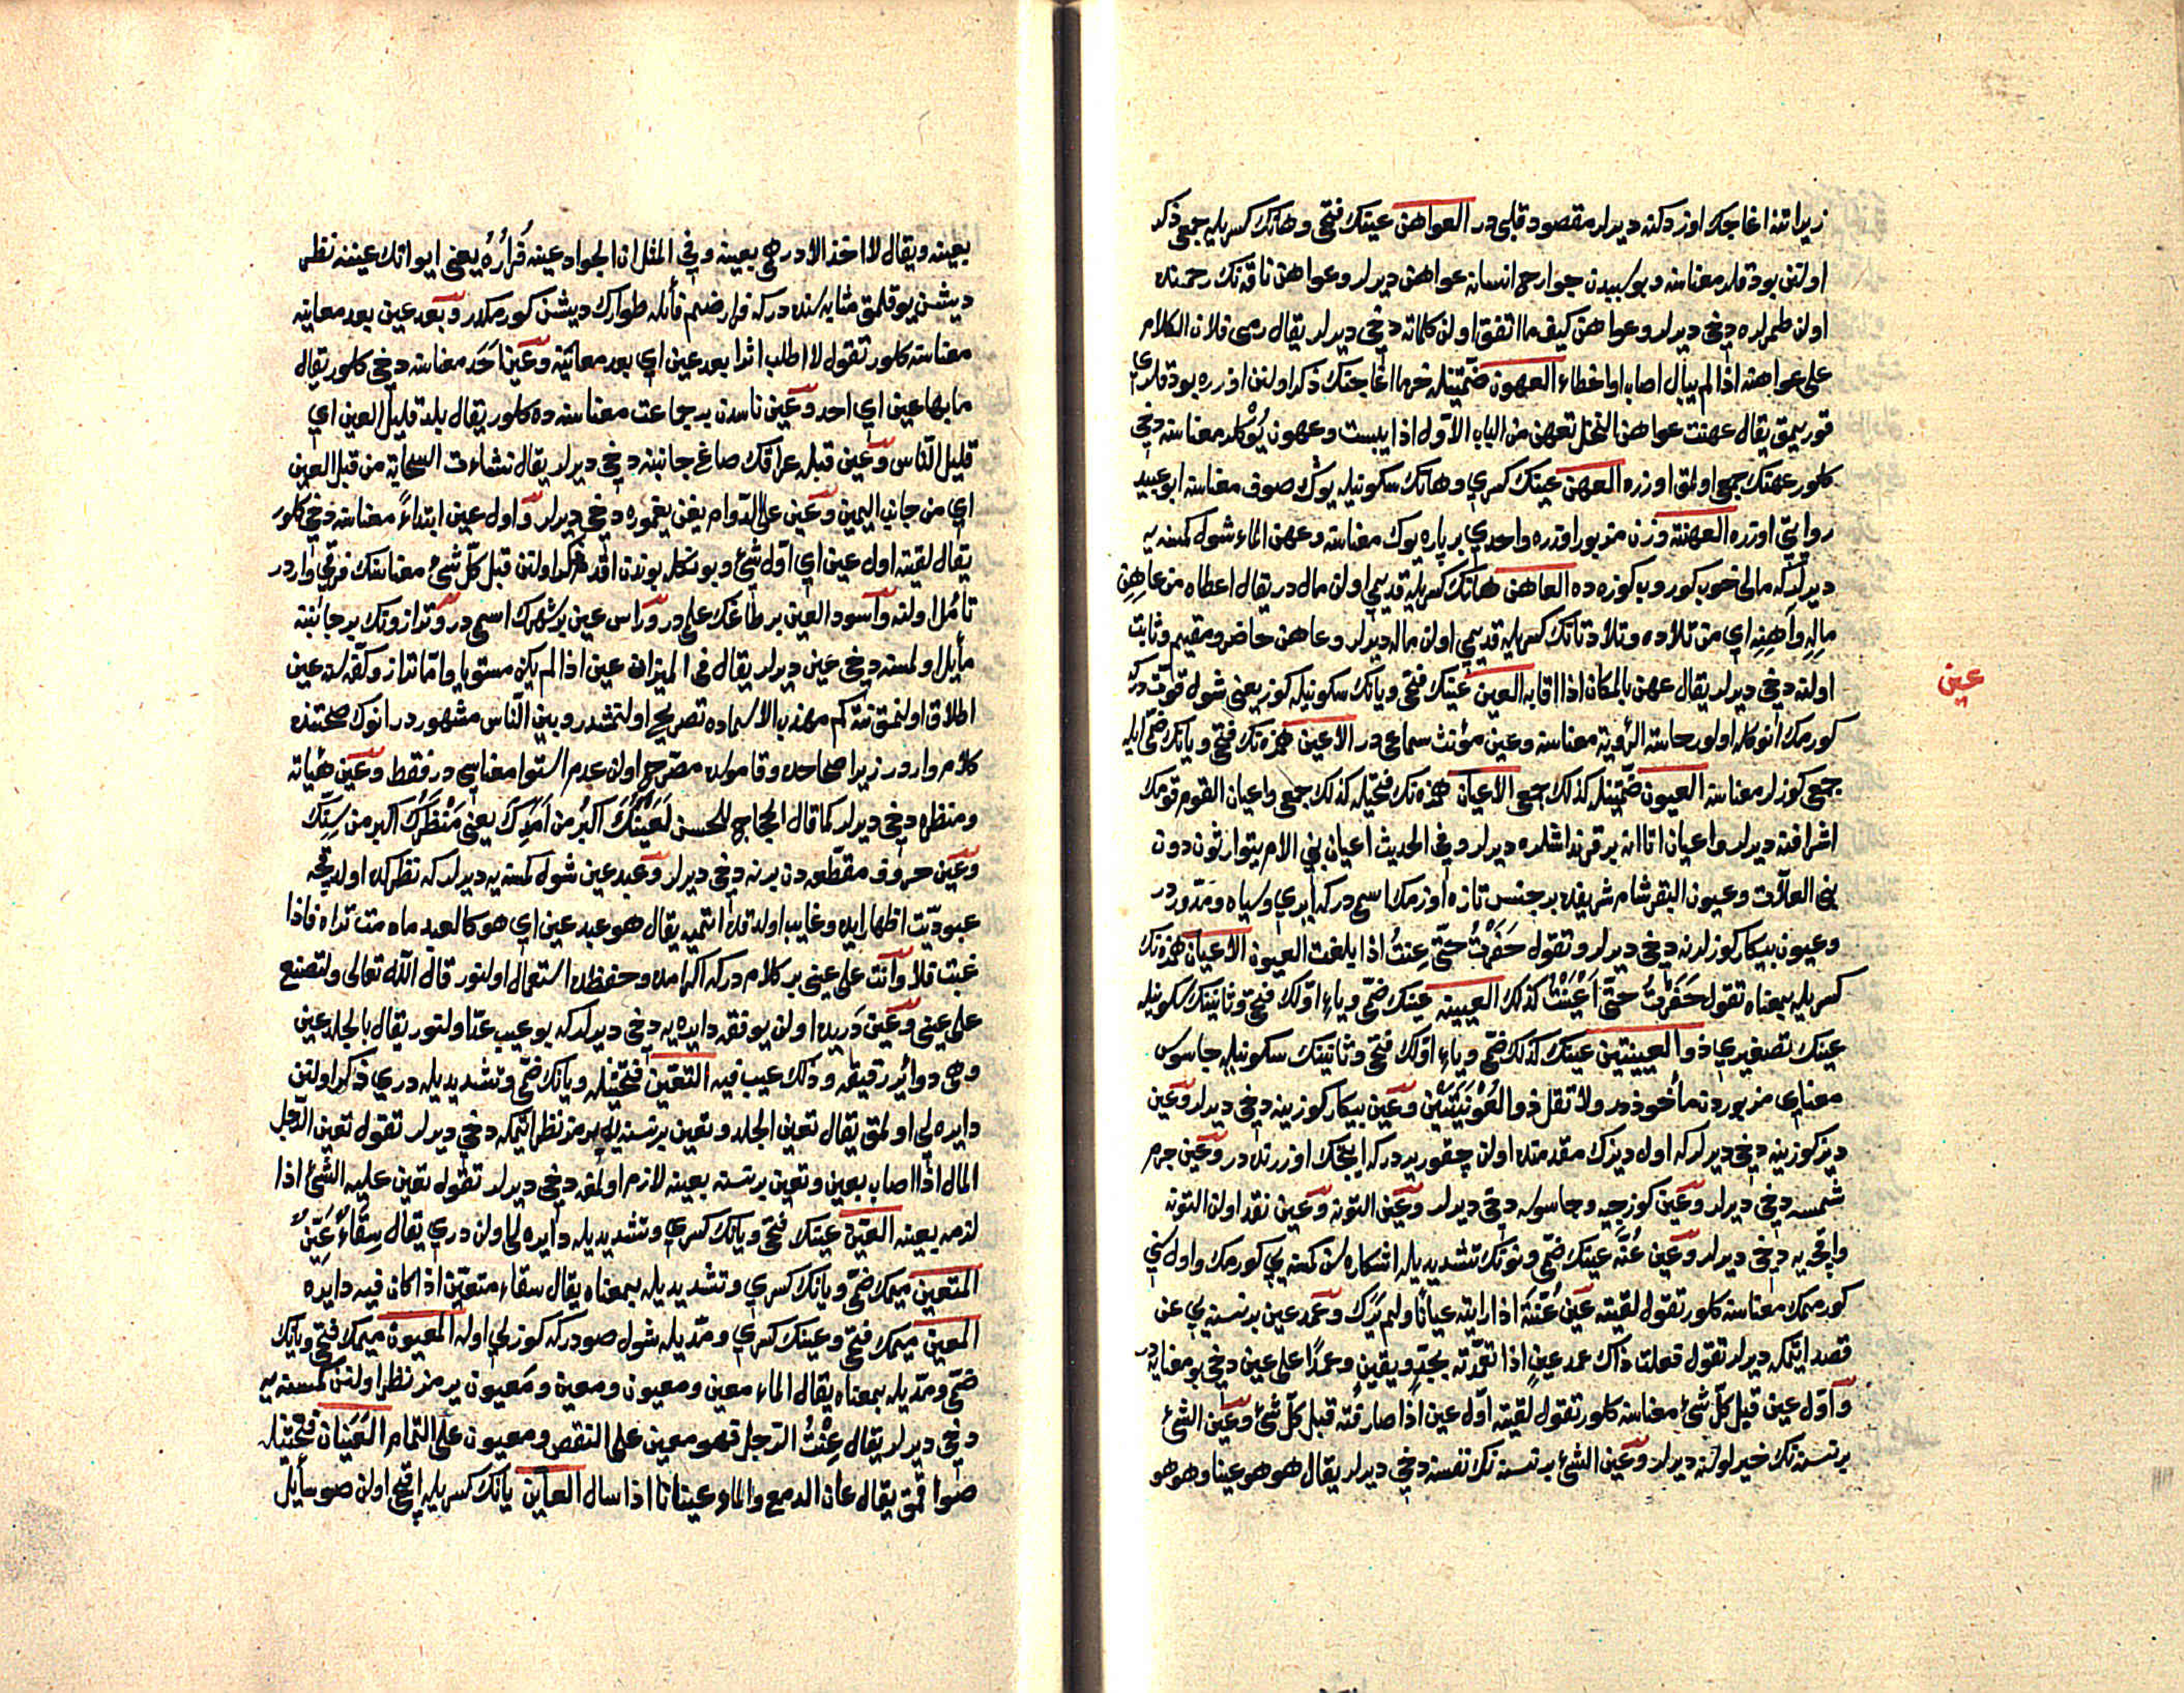 زيرا تنه اغاجك اوزدكنه ديرلر مقصود قلبى در العواهن عينك فتحى و هانك كسريله جمعى ذكر
اولنن بودقلر معناسنه و بو سبيدن جوارح انسانه عواهن ديرلر و عواهن ناقه نك رحمنده
اولن طمرلره دخى ديرلر و عواهن كيف ما اتفق اولن كلماته دخى ديرلر يقال رمى فلان الكلام
على عواهنه اذا لم يبال اصاب او اخطاء العهون ضمتينله خرما اغاجنك ذكر اولنن اوزره بودقلرى
قوريمق يقال عهنت عواهن النخل تعهن من الباب الاول اذا يبست و عهون يوكلر معناسنه دخى
كلور عهنك جمعى اولمق اوزره العهن عينك كسرى و هانك سكونيله يوك صوف معناسنه ابو عبيد
روايتى اوزره العهنة وزن مزبور اوزره واحدى بر پاره يوك معناسنه و عهن الماء شول كمسنه يه
ديرلر كه مالى خوب كوروب كوزه ده العاهن هانك كسريله قديمى اولن مال در يقال اعطاه من عاهن
ماله و آهنه اى من تلاده و تلاد تانك كسريله قديمى اولن ماله ديرلر و عاهن حاضر و مقيم و ثابت
اولنه دخى ديرلر يقال عهن بالمكان اذا اقام به العين عينك فتحى و يانك سكونيله كوز يعنى شول قوت در كه
عين
كورمك انوكله اولور حاسة الرؤية معناسنه و عين مؤنث سماعى در الاعين همزه نك فتحى و يانك ضمى ايله
جمعى كوزلر معناسنه العيون ضمتينله كذلك جمعى الاعيان همزه نك فتحيله كذلك جمعى و اعيان القوم قومك
اشرافنه ديرلر و اعيان اتا انه بر قرنداشلره ديرلر و فى الحديث اعيان بنى الام يتوارثون دون
بنى العلات و عيون البقر شام شريفده بر جنس تازه اوزمك اسمى در كه ايرى و سياه و مدور در
و عيون بيكار كوزلرنه دخى ديرلر و تقول حفرت حتى عنت اذا بلغت العيون الاعيان همزه نك
كسريله بمعناه تقول حفرت حتى اعينت كذلك العيينة عينك ضمى و ياء اولك فتحى و ثانينك سكونيله
عينك تصغيرى ذو العيينتين عينك كذلك ضمى و ياء اولك فتحى و ثانينك سكونيله جاسوس
معناى مزبوردن مأخوذدر و لا تقل ذو العوينتين و عين بيكار كوزينه دخى ديرلر و عين
ديز كوزينه دخى ديرلر كه اول ديزك مقدمنده اولن چقور يردر كه اينجك اوزرنده در و عين جرم
شمسه دخى ديرلر و عين كوزجيه و جاسوسه دخى ديرلر و عين التونه و عين نقد اولن التونه
و اقچه يه دخى ديرلر و عين عنة عينك ضمى و نونك تشديديله اشكاره سن كمسنه يى كورمك و اول سنى
كورممك معناسنه كلور تقول لقيته عين عنة اذا رايته عيانا و لم يرك و عمد عين بر نسنه يى عن
قصد ايتمكه ديرلر تقول فعلت ذاك عمد عين اذا تعمدته بجد و يقين و عمدا على عين دخى بو معنايه در
و اول عين قبل كل شئ معناسنه كلور تقول لقيته اول عين اذا صادفته قبل كل شئ و عين الشئ
بر نسنه نك خيرلوسنه ديرلر و عين الشئ بر نسنه نك نفسنه دخى ديرلر يقال هو هو عينا و هو هو
بعينه و يقال لا اخذ الا درهمى بعينه و فى المثل ان الجواد عينه فراره يعنى ايو اتك عيننه نظر
ديشن يوقلمق مثابه سنده در كه فرار ضم فائله طوارك ديشن كورمكدر و بعد عين بعد معاينه
معناسنه كلور تقول لا اطلب اثرا بعد عين اى بعد معاينة و عين احد معناسنه دخى كلور يقال
ما بها عين اى احد و عين ناسدن بر جماعت معناسنه ده كلور يقال بلد قليل العين اى
قليل الناس و عين قبله عراقك صاغ جانبنه دخى ديرلر يقال نشاءت السحابة من قبل العين
اى من جانب اليمين و عين على الدوام يغن يغموره دخى ديرلر و اول عين ابتداءً معناسنه دخى كلور
يقال لقيته اول عين اى اول شئ و بونكله بوندن اقدم ذكر اولنن قبل كل شئ معناسنك فرقى واردر
تامل اولنه و اسود العين بر طاغك علمى در و راس عين بر شهرك اسمى در و ترازونك بر جانبنه
مأيل اولمسنه دخى عين ديرلر يقال فى الميزان عين اذا لم يكن مستويا و اما ترازو كفه سنه عين
اطلاق اولنمق نته كم مهذب الاسماده تصريح اولنمشدر و بين الناس مشهوردر انوك صحتنده
كلام واردر زيرا صحاحده و قاموسده مصرح اولن عدم استوا معناسى در فقط و عين هيأته
و منظره دخى ديرلر كما قال الحجاج للحسن لعينك اكبر من امدك يعنى منظرك اكبر من سنك
و عين حروف مقطعه دن برنه دخى ديرلر و عبد عين شول كمسنه يه ديرلر كه نظركده اولدقجه
عبوديت اظهار ايده و غايب اولدقده ايتميه يقال هو عبد عين اى هو كالعبد ما دمت تراه فاذا
غبت فلا و انت على عينى بر كلام در كه اكرامده و حفظده استعمال اولنور قال الله تعالى و لتصنع
على عينى و عين دريده اولن يوفقه دايره يه دخى ديرلر كه بو عيب عد اولنور يقال بالجلد عين
و هى دوائر رقيقة و ذلك عيب فيه التعين فتحتينله و يانك ضمى و تشديديله درى ذكر اولنن
دايره لى اولمق يقال تعين الجلد و تعين بر نسنه يه يرمز نظر ايتمكه دخى ديرلر تقول تعين الرجل
المال اذا اصابه بعين و تعين بر نسنه بعينه لازم اولمغه دخى ديرلر تقول تعين عليه الشئ اذا
لزمه بعينه العين عينك فتحى و يانك كسرى و تشديديله دايره لى اولن درى يقال سقاء عين
المتعين ميمك ضمى و يانك كسرى و تشديديله بمعناه يقال سقاء متعين اذا كان فيه دايره
المعين ميمك فتحى و عينك كسرى و مديله شول صودر كه كوزلى اوله المعيون ميمك فتحى و يانك
ضمى و مديله بمعناه يقال الماء معين و معيون و معين و معيون يرمز نظر اولنن كمسنه يه
دخى ديرلر يقال عنت الرجل فهو معين على النقص و معيون على التمام العينان فتحتينله
صو اقمق يقال عان الدمع و الماء عينانا اذا سال العاين يانك كسريله اقجى اولن صو سأيل